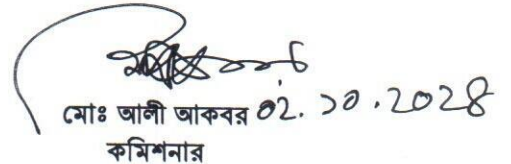 মোঃ আলী আকবর ০২.১০.২০২৪
কমিশনার